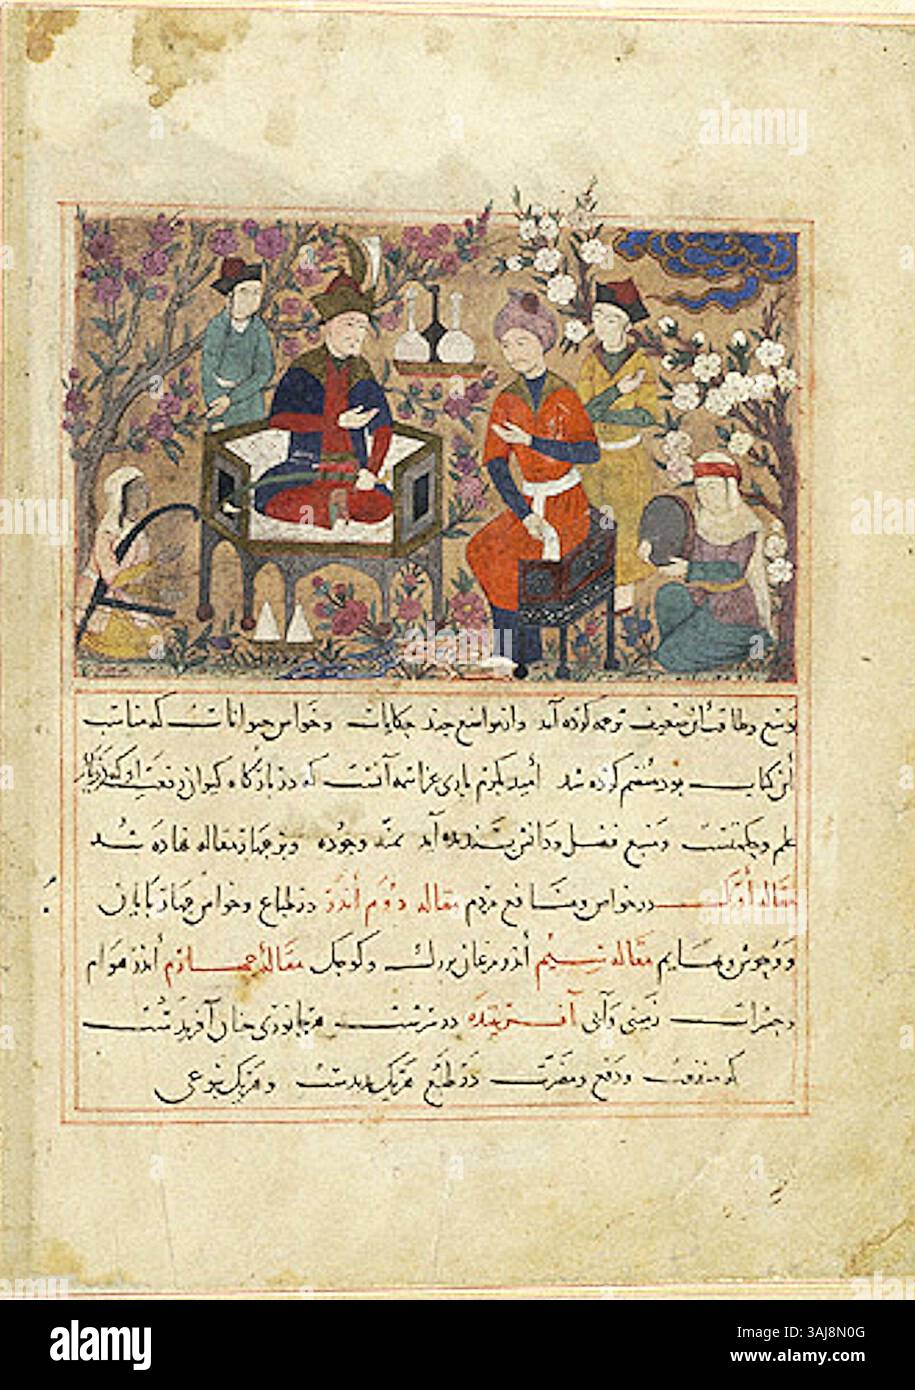 توسع وطاقت این ضعیف ترجمه کرده آمد و از مواضع چند حکایات و خواص حیوانات که مناسب
این کتاب بود منضم کرده شد امید بکرم باری عز اسمه آنست که در بارگاه کیوان رفعت او که
علم و حکمتست و منبع فضل و دانش پسندیده آید بمنه وجوده وبر چهار مقاله نهاده شد
مقاله اول در خواص و منافع مردم مقاله دوم اندر در طباع و خواص چهارپایان
و وحوش و بهایم مقاله سیم اندر مرغان بزرک و کوچک مقاله چهارم اندر هوام
و حشرات زمینی و آبی آفریننده
که منفعت ودفع ومضرت در طبع هر یک بدیدست و هر یک بنوعی
alamy
alamy
Image ID: 3AJ8N0G
www.alamy.com